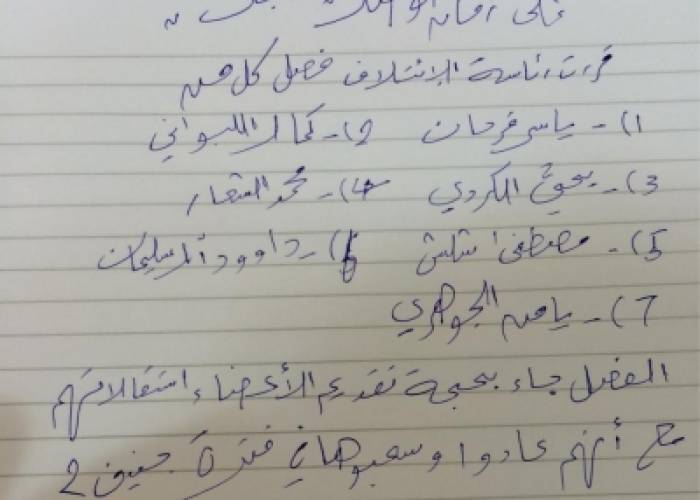 على
قررت رئاسة الائتلاف فصل كل من
1)- ياسر فرحان 2)- كمال اللبواني
3)- يحيى الكردي 4)- محمد الشعار
5)- مصطفى شلش 6)- داوود السليمان
7)- يامن الجوهري
الفصل جاء بحجة تقديم الأعضاء استقالاتهم
مع أنهم عادوا وسحبوها في فترة جنيف 2